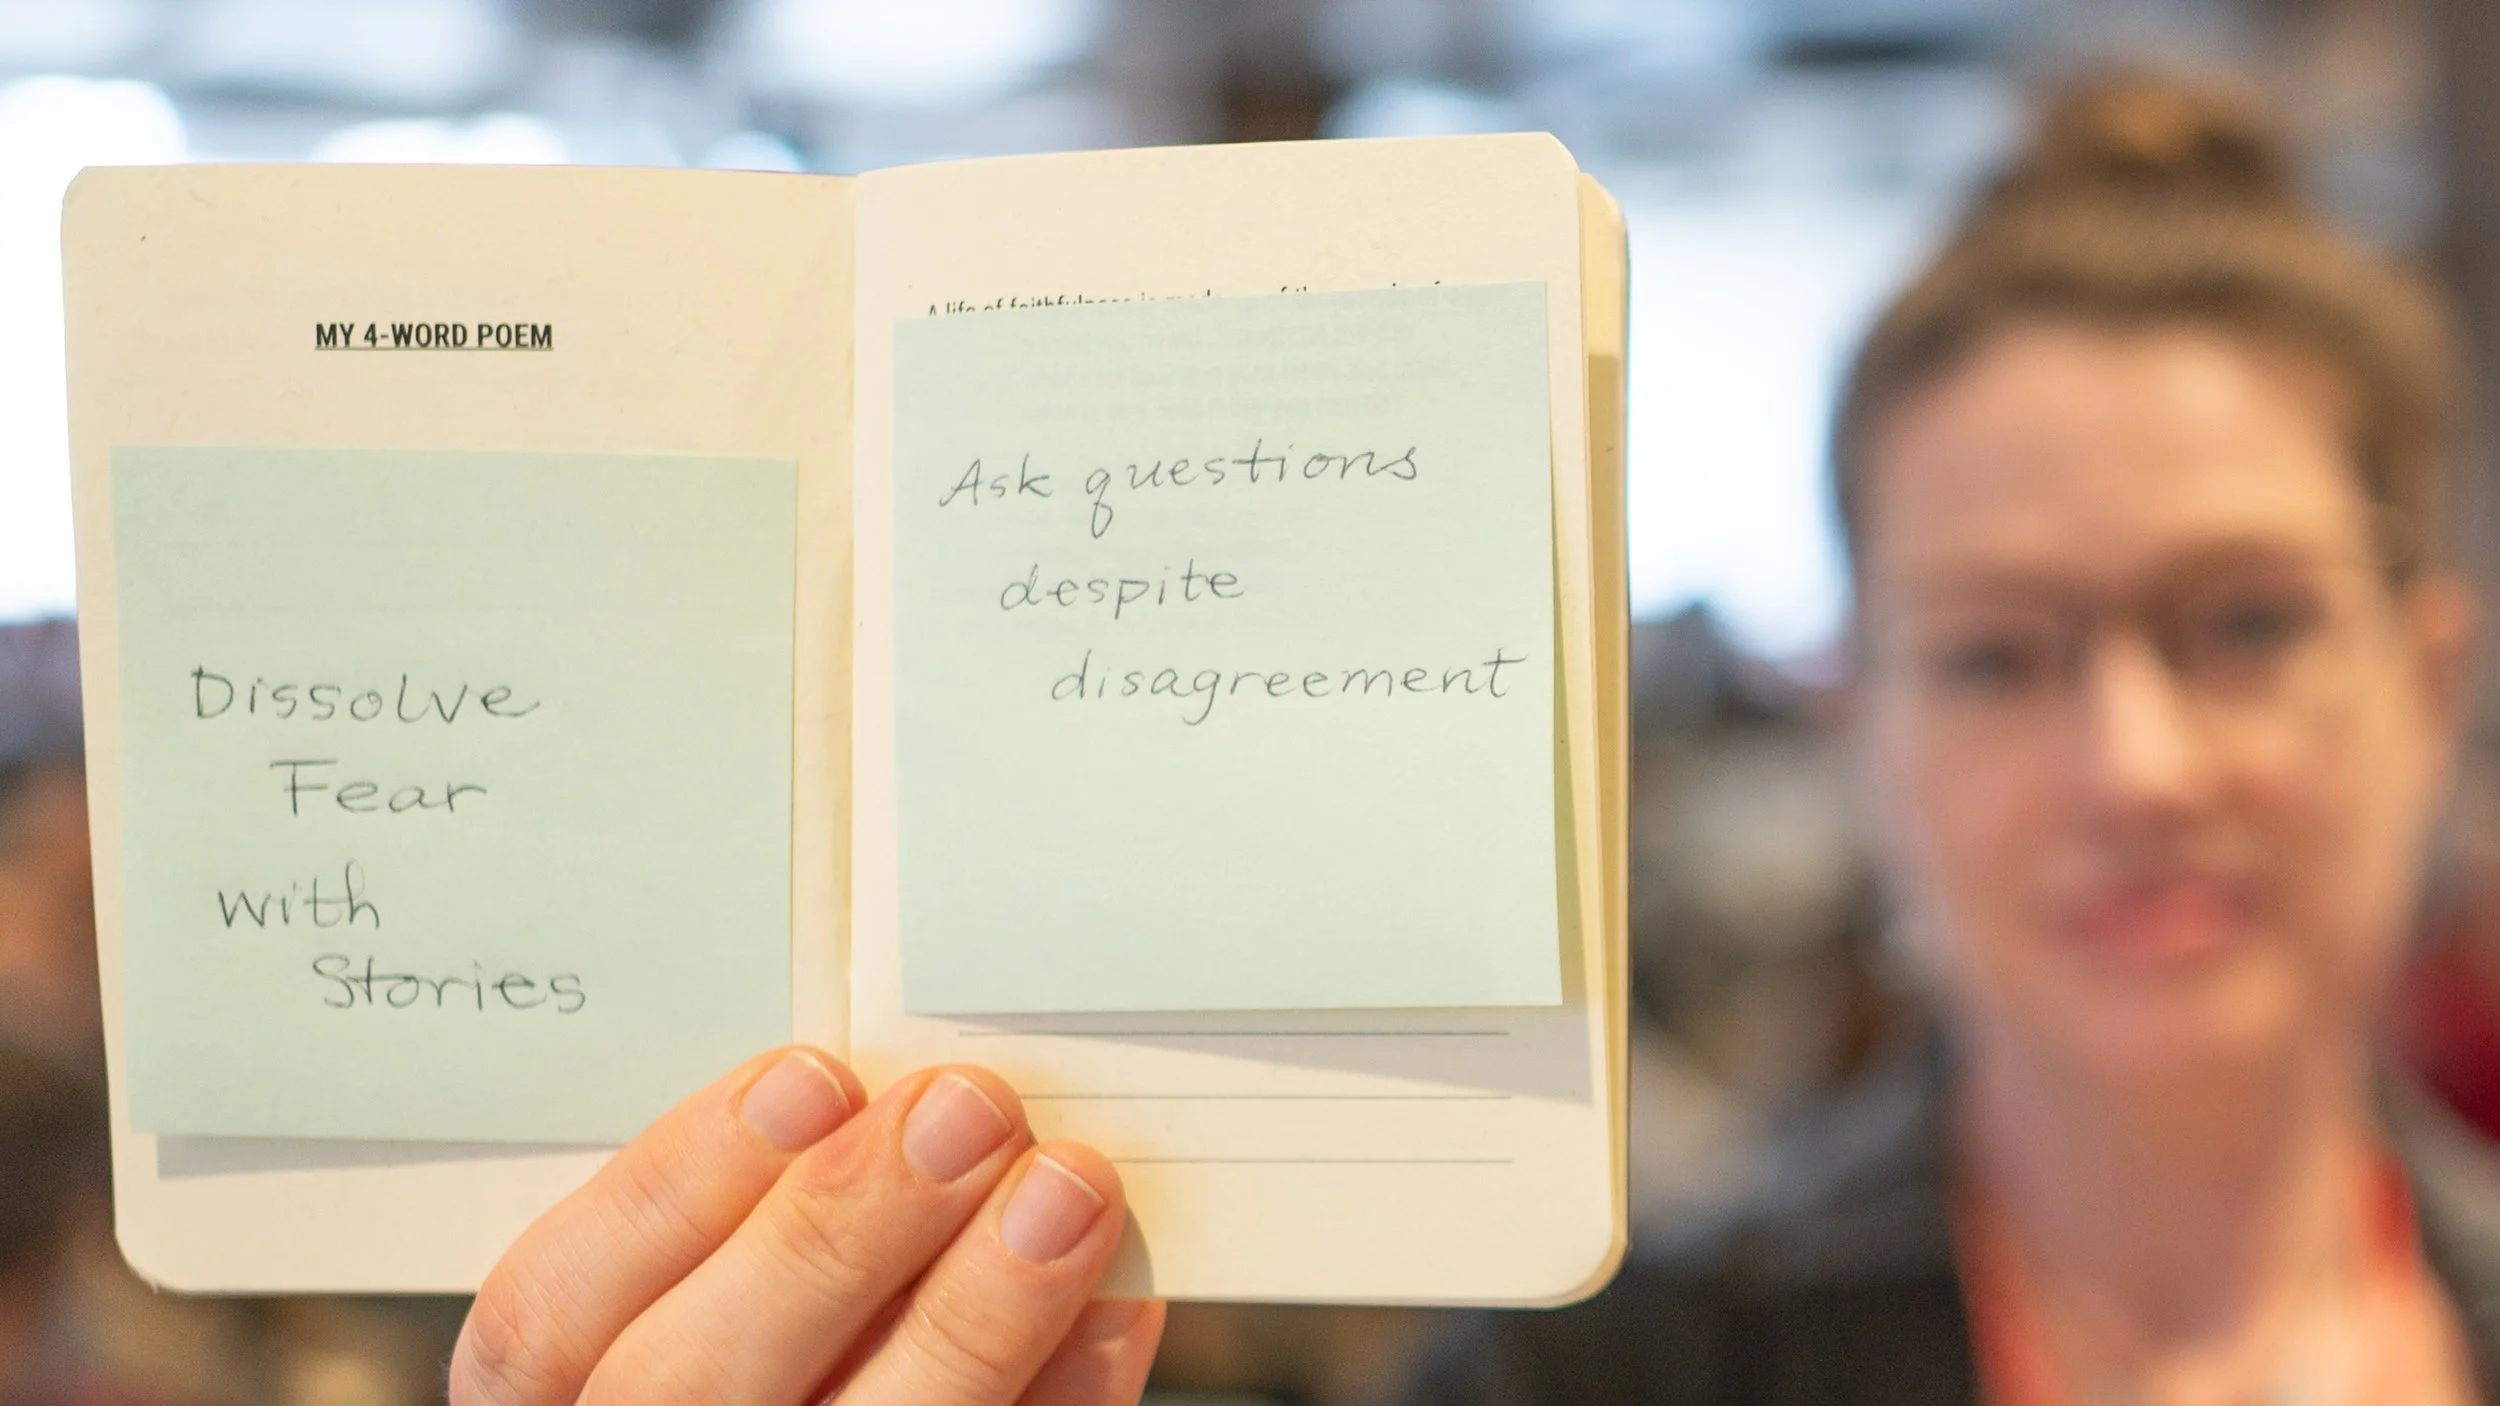 MY 4-WORD POEM
Dissolve
Fear
with
Stories
A life of faithfulness is made
Ask questions
despite
disagreement